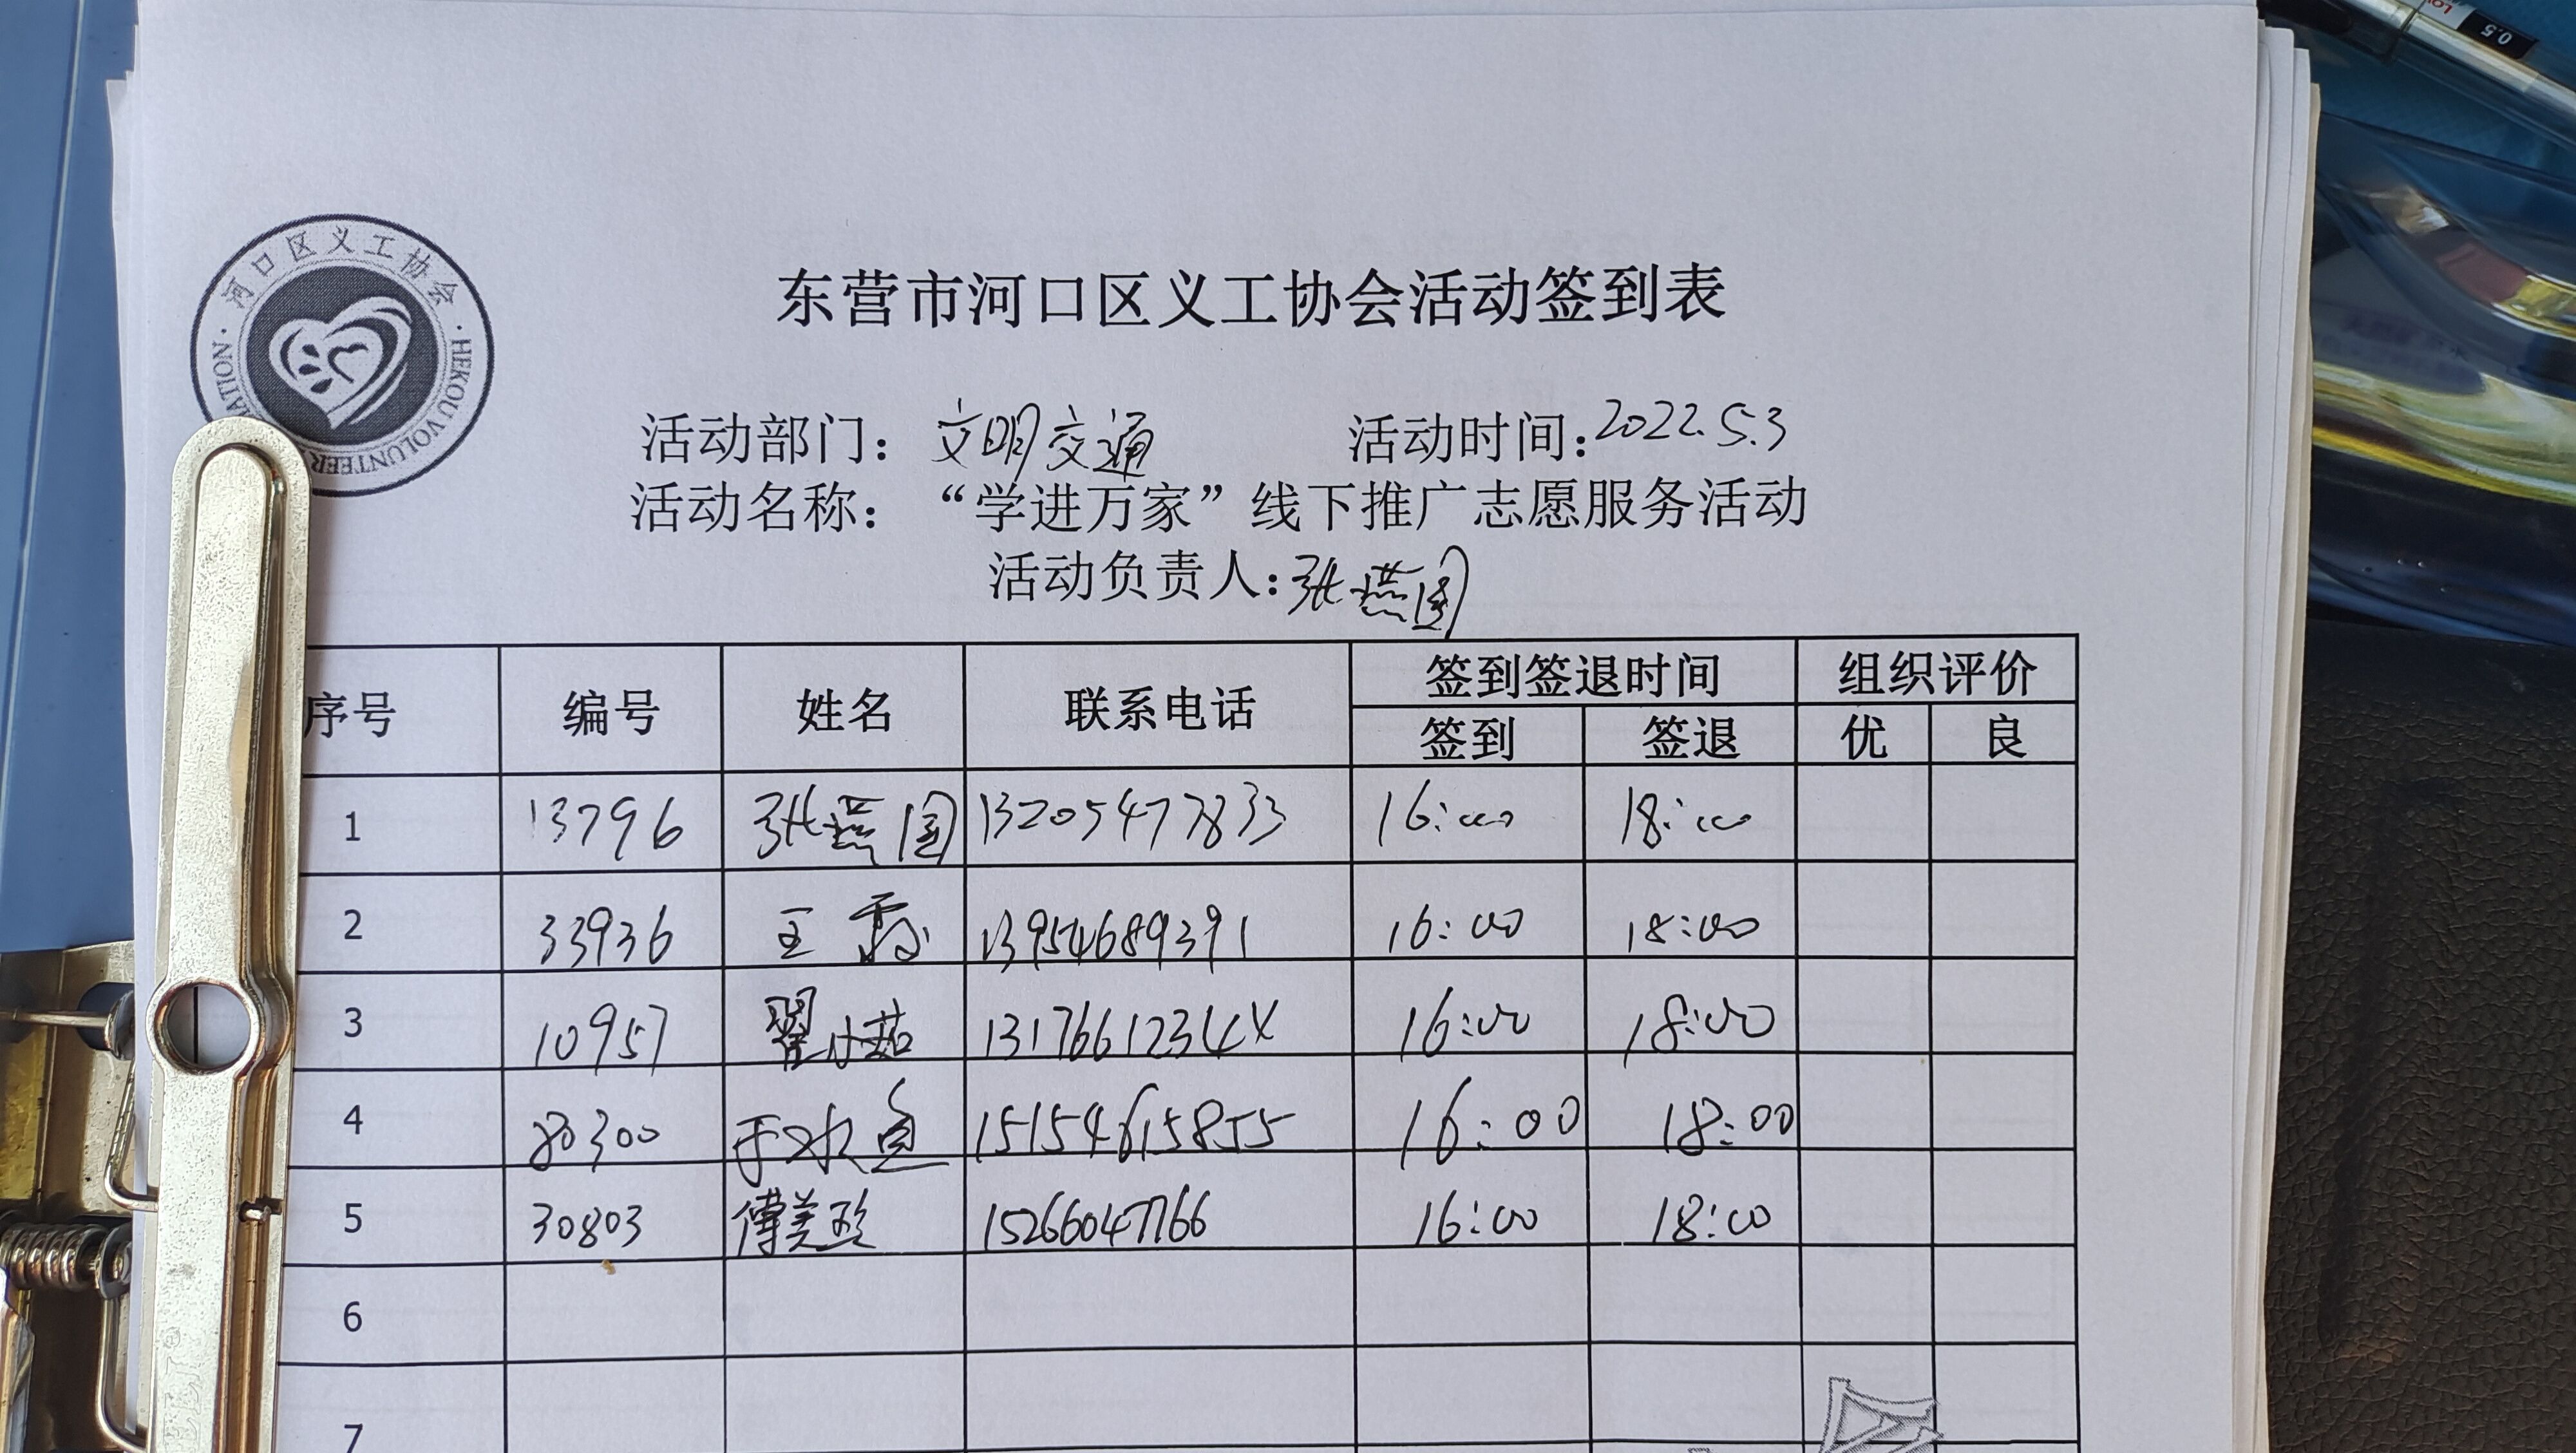 河口区义工协会
HEKOU VOLUNTEER
东营市河口区义工协会活动签到表
活动部门：文明交通 活动时间：2022.5.3
活动名称：“学进万家”线下推广志愿服务活动
活动负责人：张燕国
序号 编号 姓名 联系电话 签到签退时间 组织评价
签到 签退 优 良
1 13796 张燕国 13205477833 16:00 18:00
2 33936 王霞 13954689391 16:00 18:00
3 10957 翟小茹 1317661234X 16:00 18:00
4 80300 15154615855 16:00 18:00
5 30803 傅美玲 15266047766 16:00 18:00
6
7
0.5